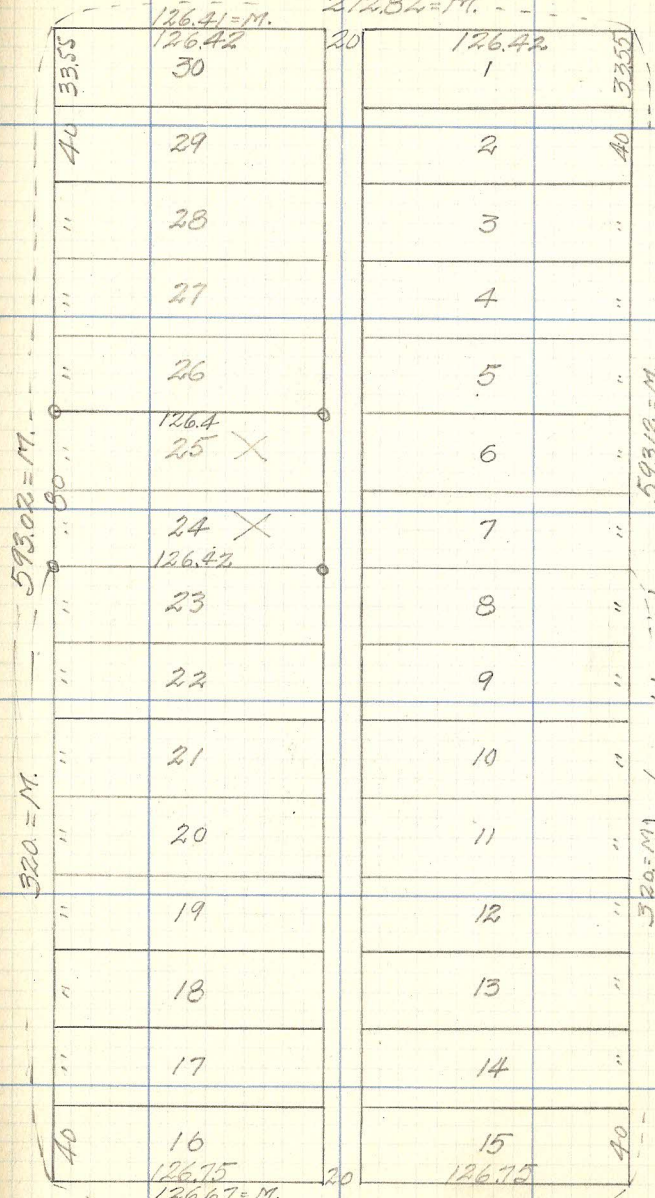 126.41=M. 272.82=M.
126.42 20 126.42
33.55 30 1 33.55
40 29 2 40
" 28 3 "
" 27 4 "
" 26 5 "
126.4
" 25 X 6 "
593.02=M. 80 593.12=M.
" 24 X 7 "
126.42
" 23 8 "
" 22 9 "
" 21 10 "
320.=M. " 20 11 " 320.=M
" 19 12 "
" 18 13 "
" 17 14 "
40 16 15 40
126.75 20 126.75
126.67=M.